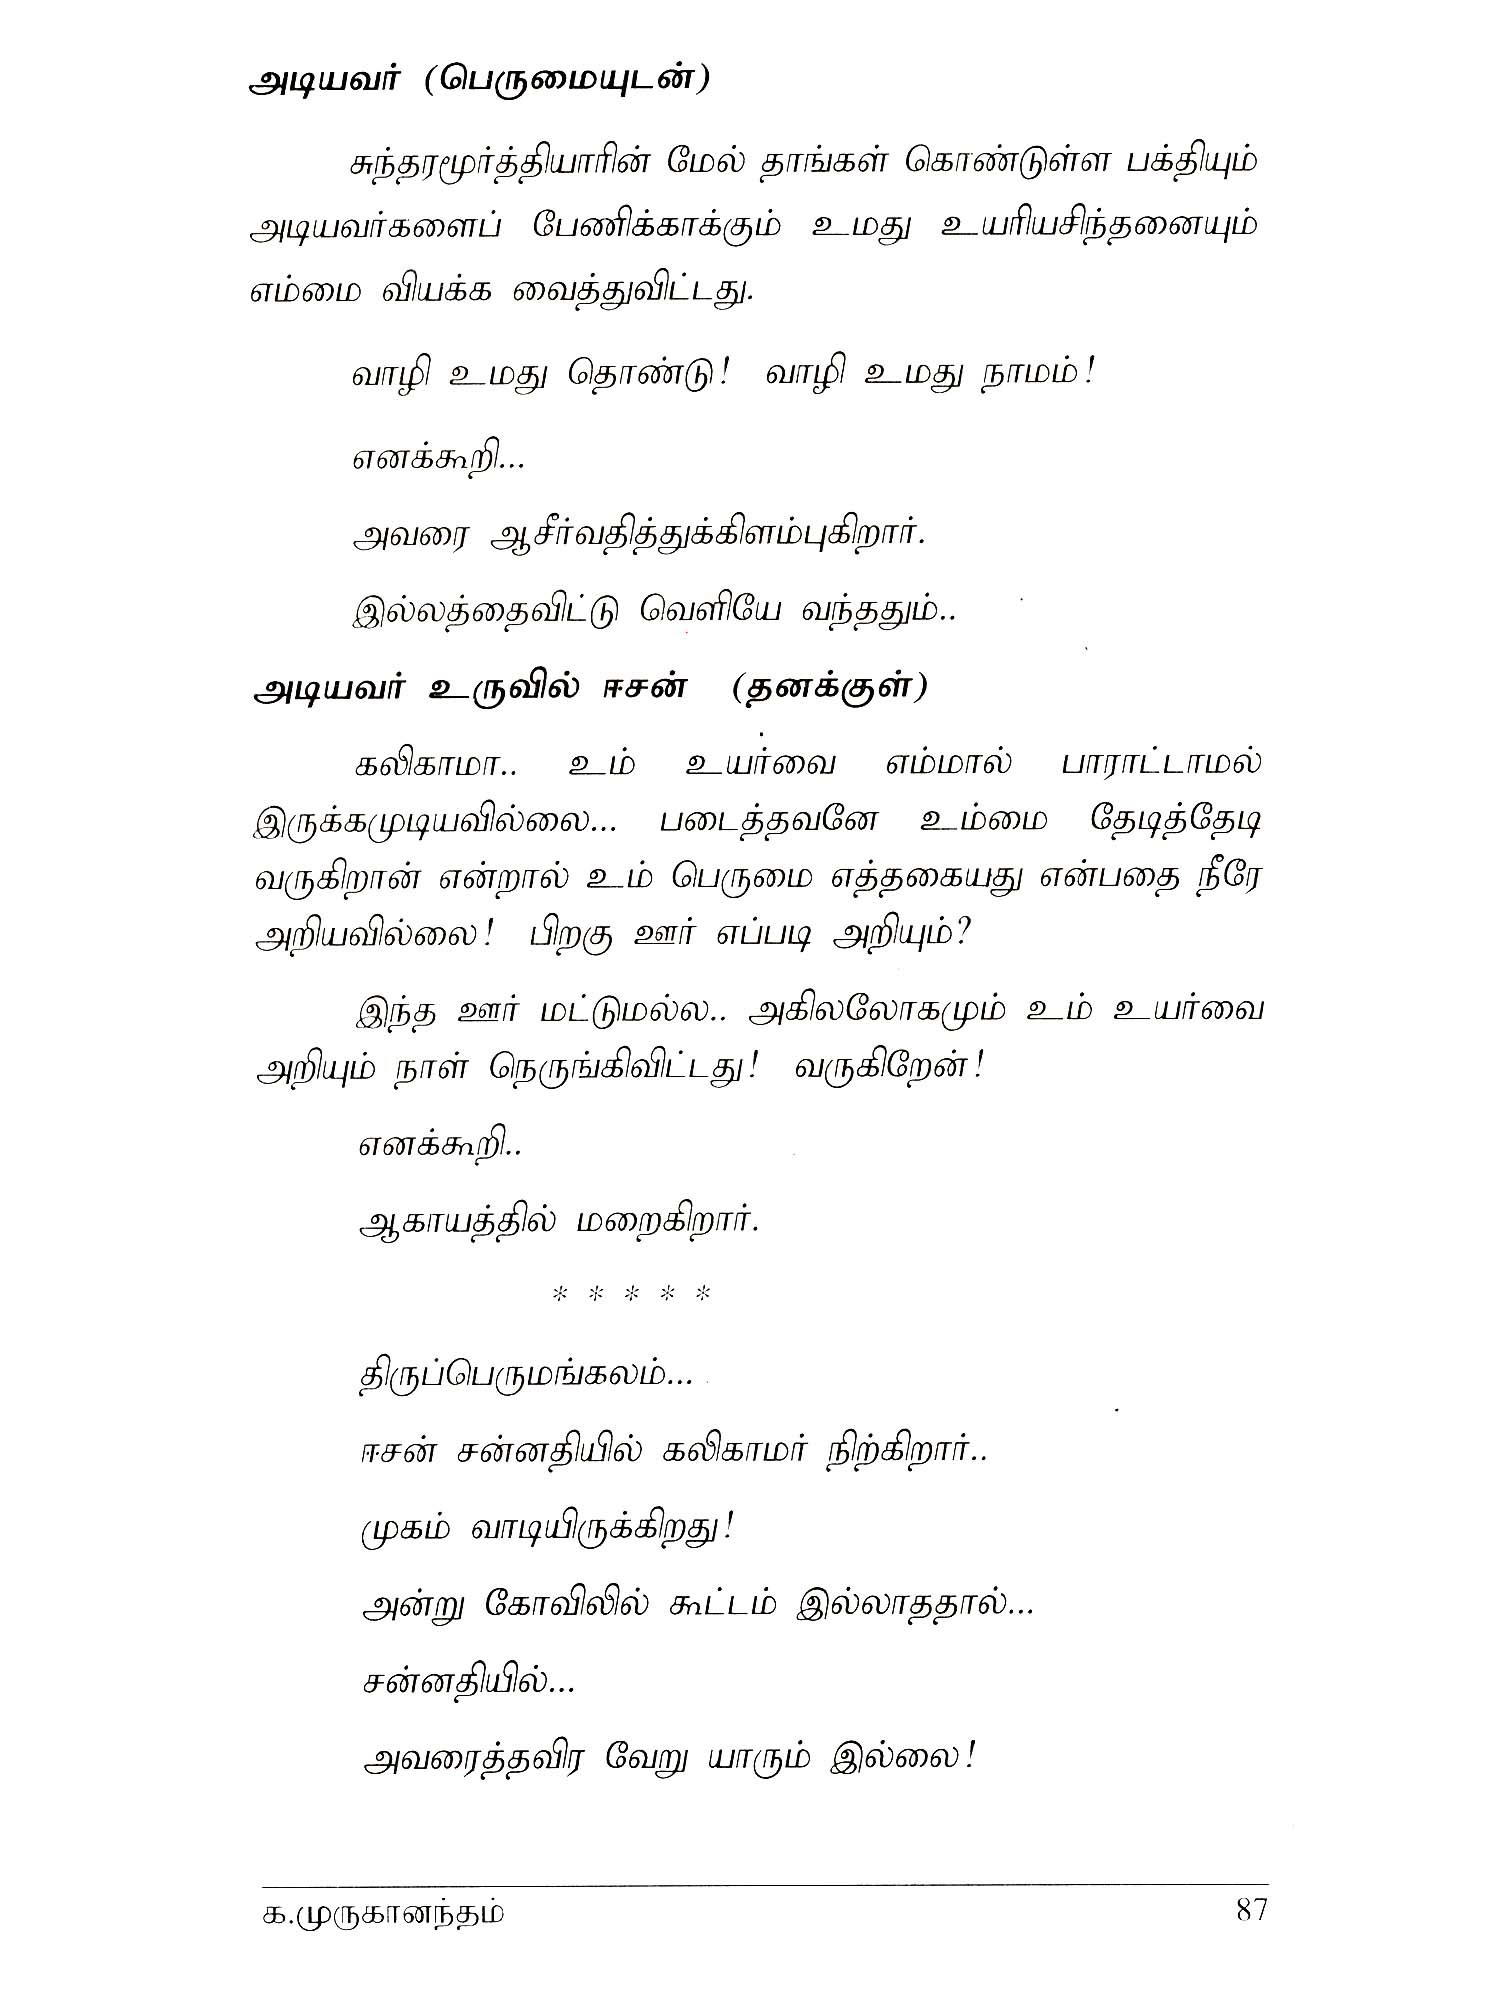 அடியவர் (பெருமையுடன்)
சுந்தரமூர்த்தியாரின் மேல் தாங்கள் கொண்டுள்ள பக்தியும்
அடியவர்களைப் பேணிக்காக்கும் உமது உயரியசிந்தனையும்
எம்மை வியக்க வைத்துவிட்டது.
வாழி உமது தொண்டு! வாழி உமது நாமம்!
எனக்கூறி...
அவரை ஆசீர்வதித்துக்கிளம்புகிறார்.
இல்லத்தைவிட்டு வெளியே வந்ததும்..
அடியவர் உருவில் ஈசன் (தனக்குள்)
கலிகாமா.. உம் உயர்வை எம்மால் பாராட்டாமல்
இருக்கமுடியவில்லை... படைத்தவனே உம்மை தேடித்தேடி
வருகிறான் என்றால் உம் பெருமை எத்தகையது என்பதை நீரே
அறியவில்லை! பிறகு ஊர் எப்படி அறியும்?
இந்த ஊர் மட்டுமல்ல.. அகிலலோகமும் உம் உயர்வை
அறியும் நாள் நெருங்கிவிட்டது! வருகிறேன்!
எனக்கூறி..
ஆகாயத்தில் மறைகிறார்.
* * * * *
திருப்பெருமங்கலம்...
ஈசன் சன்னதியில் கலிகாமர் நிற்கிறார்..
முகம் வாடியிருக்கிறது!
அன்று கோவிலில் கூட்டம் இல்லாததால்...
சன்னதியில்...
அவரைத்தவிர வேறு யாரும் இல்லை!
க.முருகானந்தம் 87